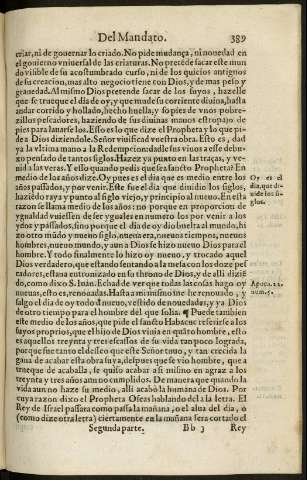 Del Mandato. 389
criar, ni de gouernar lo criado. No pide mudança, ni nouedad en
el gouierno vniuersal de las criaturas. No precede sacar este mun
do visible de su acostumbrado curso, ni de los quicios antignos
de su creacion, mas alto negocio tiene con Dios, y de mas pelo y
grauedad. Al mismo Dios pretende sacar de los suyos, hazelle
que se trueque el dia de oy, y que mude su corriente diuina, hasta
andar corrido y hollado, huella, y so pies de vnos pobre-
zillos pescadores, haziendo de sus diuinas manos estropajo de
pies para lanarse los. Esto es lo que dize el Propheta y lo que pi-
de a Dios diziendole. Señor viuificad vuestra obra. Esto es, dad
ya la vltima mano a la Redempcion, dadle sus viuos a esse debu-
xo pensado de tantos siglos. Hazez ya punto en las traças, y ve-
nid a las veras. Y esso quando pedis que sea sancto Propheta? En
medio de los años dize. Oy pues es el dia que es medio entre los
años passados, y por venir. Este fue el dia que diuidio los siglos,
haziedo raya y punto al siglo viejo, y principio al nueuo. En esta
razon se llama medio de los años: no porque en proporcion de
ygualdad vuiessen de ser yguales en numero los por venir a los
ydos y passados, sino porque el dia de oy dio buelta al mundo, hi
zo otro mudo y nueuo siglo, nueua era, nueuos tiempos, nueuos
hombres, nueuo mundo, y aun a Dios se hizo nueuo Dios para el
hombre. Y todo finalmente lo hizo oy nueuo, y trocado aquel
Dios verdadero, que estando sentando a la mesa con los doze pes
cadores, estaua entronizado en su throno de Dios, y de alli dizie
do, como dixo S. Iuan. Echad de ver que todas las cosas hago oy
nueuas, esto es, renouadas. Hasta a mi mismo me he renouado, y
salgo el dia de oy todo nueuo, vestido de nouedades, y ya Dios
de otro tiempo para el hombre del que solia. ¶ Puede tambien
este medio de los años, que pide el sancto Habacuc referirse a los
suyos proprios, que el hijo de Dios viuia en quato hombre, esto
es aquellos treynta y tres escassos de su vida tan poco lograda,
porque fue tanto el desseo que este Señor tuuo, y tan crecida la
gana de acabar esta obra suya, despues que se vio hombre, que a
trueque de acaballa, se quiso acabar asi mismo en agraz a los
treynta y tres años aun no cumplidos. De manera que quando la
vida aun no haze su medio, alli acabò la humana de Dios. Por
cuya razon dixo el Propheta Oseas hablando del a la letra. El
Rey de Israel passara como passa la mañana, o el alua del dia, o
(como dize otra letra) ciertamente en la mañana sera cortado el
Oy es el
dia, que di-
uide los si-
glos.
Apoca. 21.
num. 5.
Segunda parte. Bb 3 Rey